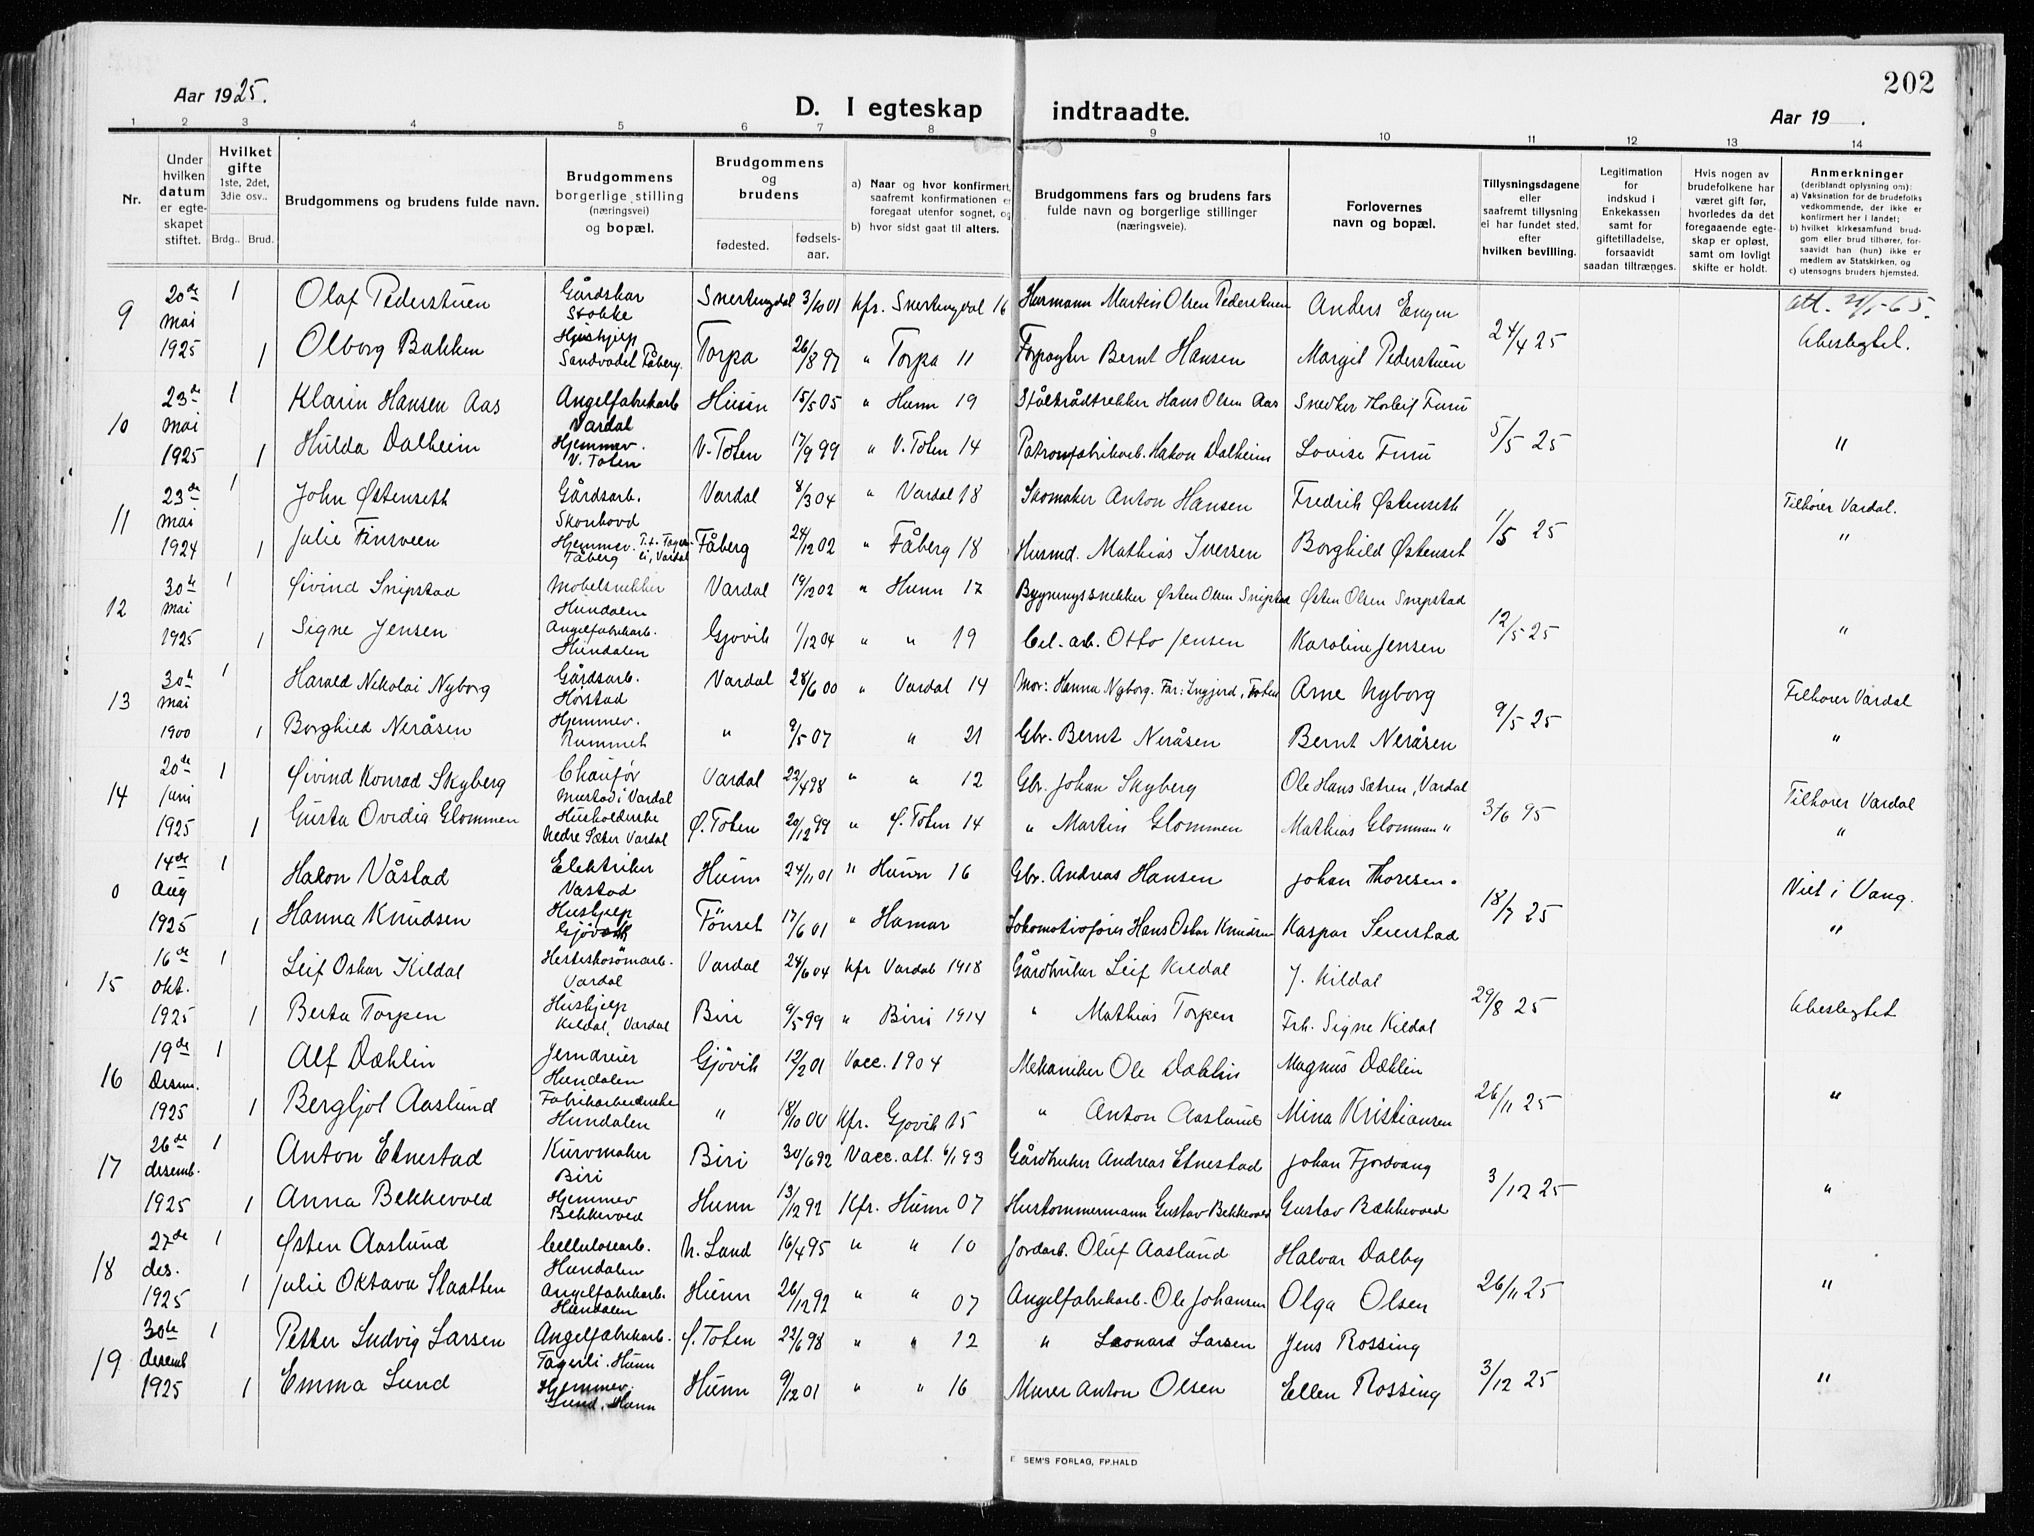 202
Aar 1925.
D. I egteskap indtraadte.
Aar 19 .
1 2 3 4 5 6 7 8 9 10 11 12 13 14
Nr.
Under hvilken datum er egteskapet stiftet.
Hvilket gifte 1ste, 2det, 3die osv..
Brdg. Brud.
Brudgommens og brudens fulde navn.
Brudgommens borgerlige stilling (næringsvei) og bopæl.
Brudgommens og brudens
fødested. fødselsaar.
a) Naar og hvor konfirmert, saafremt konfirmationen er foregaat utenfor sognet, og
b) hvor sidst gaat til alters.
Brudgommens fars og brudens fars fulde navn og borgerlige stillinger (næringsveie).
Forlovernes navn og bopæl.
Tillysningsdagene eller saafremt tillysning ei har fundet sted, efter hvilken bevilling.
Legitimation for indskud i Enkekassen samt for giftetilladelse, forsaavidt saadan tiltrænges.
Hvis nogen av brudefolkene har været gift før, hvorledes da det foregaaende egteskap er opløst, samt om lovligt skifte er holdt.
Anmerkninger (deriblandt oplysning om):
a) Vaksination for de brudefolks vedkommende, der ikke er konfirmert her i landet;
b) hvilket kirkesamfund brudgom eller brud tilhører, forsaavidt han (hun) ikke er medlem av Statskirken, og
c) utensogns bruders hjemsted.
9 20de mai 1925 1 Olaf Pederstuen Gårdskar Stokke Snertingdal 3/10 01 kfr. Snertingdal 16 Hermann Martin Olsen Pederstuen Anders Engen 24/4 25 Att. 20/1-65.
1 Olborg Bakken Hushjelp Sandvadet Fåberg. Torpa 26/8 97 " Torpa 11 Forpagter Bernt Hansen Margit Pederstuen Ubeslegtet.
10 23de mai 1925 1 Klarin Hansen Aas Angelfabrikarb Vardal Hunn 15/5 05 " Hunn 19 Ståltrådtrekker Hans Olsen Aas Snedker Thorleif Furu 5/5 25
1 Hulda Dalheim Hjemmev. V. Toten V. Toten 17/9 99 " V. Toten 14 Patronfabrikarb. Hakon Dalheim Lovise Furu "
11 23de mai 1924 1 John Østenseth Gårdsarb. Skonhovd Vardal 8/3 04 " Vardal 18 Skomaker Anton Hansen Fredrik Østenseth 1/5 25 Tilhører Vardal.
1 Julie Finsveen Hjemmev. Fåberg Fåberg 24/12 02 " Fåberg 18 Husmd. Mathias Iversen Borghild Østenset "
12 30te mai 1925 1 Øivind Snipstad Møbelsnekker Hundalen Vardal 19/12 02 " Hunn 17 Bygningssnekker Østen Olsen Snipstad Østen Olsen Snipstad 12/5 25
1 Signe Jensen Angelfabrikarb. Hundalen Gjøvik 1/12 04 " " 19 Cel. arb. Otto Jensen Karoline Jensen "
13 30te mai 1900 1 Harald Nikolai Nyborg Gårdsarb. Hørstad Vardal 28/6 00 " Vardal 14 Mor: Hanna Nyborg. Far: Ingjerd, Toten Arne Nyborg 9/5 25 Tilhører Vardal
1 Borghild Neråsen Hjemmev. Rummet " 9/5 07 " 21 Gbr. Bernt Neråsen Bernt Neråsen "
14 20de juni 1925 1 Øivind Konrad Skyberg Chauför Mustad i Vardal Vardal 22/4 98 " " 12 Gbr. Johan Skyberg Ole Hans Sætren, Vardal 3/6 95 Tilhører Vardal
1 Gusta Ovidia Glommen Husholderske Nedre Sæter Vardal Ø. Toten 20/12 99 " Ø. Toten 14 " Martin Glommen Mathias Glommen " "
0 14de Aug 1925 1 Hakon Våstad Elektriker Vastad Hunn 24/11 01 " Hunn 16 Gbr. Andreas Hansen Johan Thoresen. 18/7 25 Viet i Vang.
1 Hanna Knudsen Hushjelp Gjøvik Tönset 17/6 01 " Hamar Lokomotivfører Hans Oskar Knudsen Kaspar Seierstad "
15 16de okt. 1925 1 Leif Oskar Kildal Hesteskosömarb. Vardal Vardal 24/6 04 kfr Vardal 1918 Gårdbruker Leif Kildal J. Kildal 29/8 25
1 Berta Torpen Hushjelp Kildal, Vardal Biri 9/5 99 " Biri 1914 " Mathias Torpen Frk. Signe Kildal Ubeslegtet
16 19de Desem. 1925 1 Alf Dæhlin Jerndreier Hundalen Gjövik 12/2 01 Vacc. 1904 Mekaniker Ole Dæhlin Magnus Dæhlin 26/11 25
1 Bergljot Aaslund Fabrikarbeiderske Hundalen " 18/10 00 kfr. Gjøvik 15 " Anton Aaslund Mina Kristiansen "
17 26de desemb. 1925 1 Anton Etnestad Kurvmaker Biri Biri 30/6 92 Vacc. att. 6/1 93 Gårdbruker Andreas Etnestad Johan Fjordvang 3/12 25
1 Anna Bekkevold Hjemmev Bekkevold Hunn 13/12 92 Kfr. Hunn 07 Hustømmermann Gustav Bekkevold Gustav Bækkevold "
18 27de des. 1925 1 Østen Aaslund Cellulosearb. Hundalen N. Land 16/4 95 " " 10 Jordarb. Oluf Aaslund Halvar Dalby 26/11 25
1 Julie Oktava Slaatten Angelfabrikarb. Hundalen Hunn 26/12 92 " " 07 Angelfabrikarb. Ole Johansen Olga Olsen "
19 30te desemb 1925 1 Petter Ludvig Larsen Angelfabrikarb. Fagerli. Hunn Ø. Toten 22/6 98 " " 12 " Leonard Larsen Jens Rossing 3/12 25
1 Emma Lund Hjemmev. Lund. Hunn Hunn 9/12 01 " " 16 Murer Anton Olsen Ellen Rossing "
E SEM'S FORLAG, FR.HALD